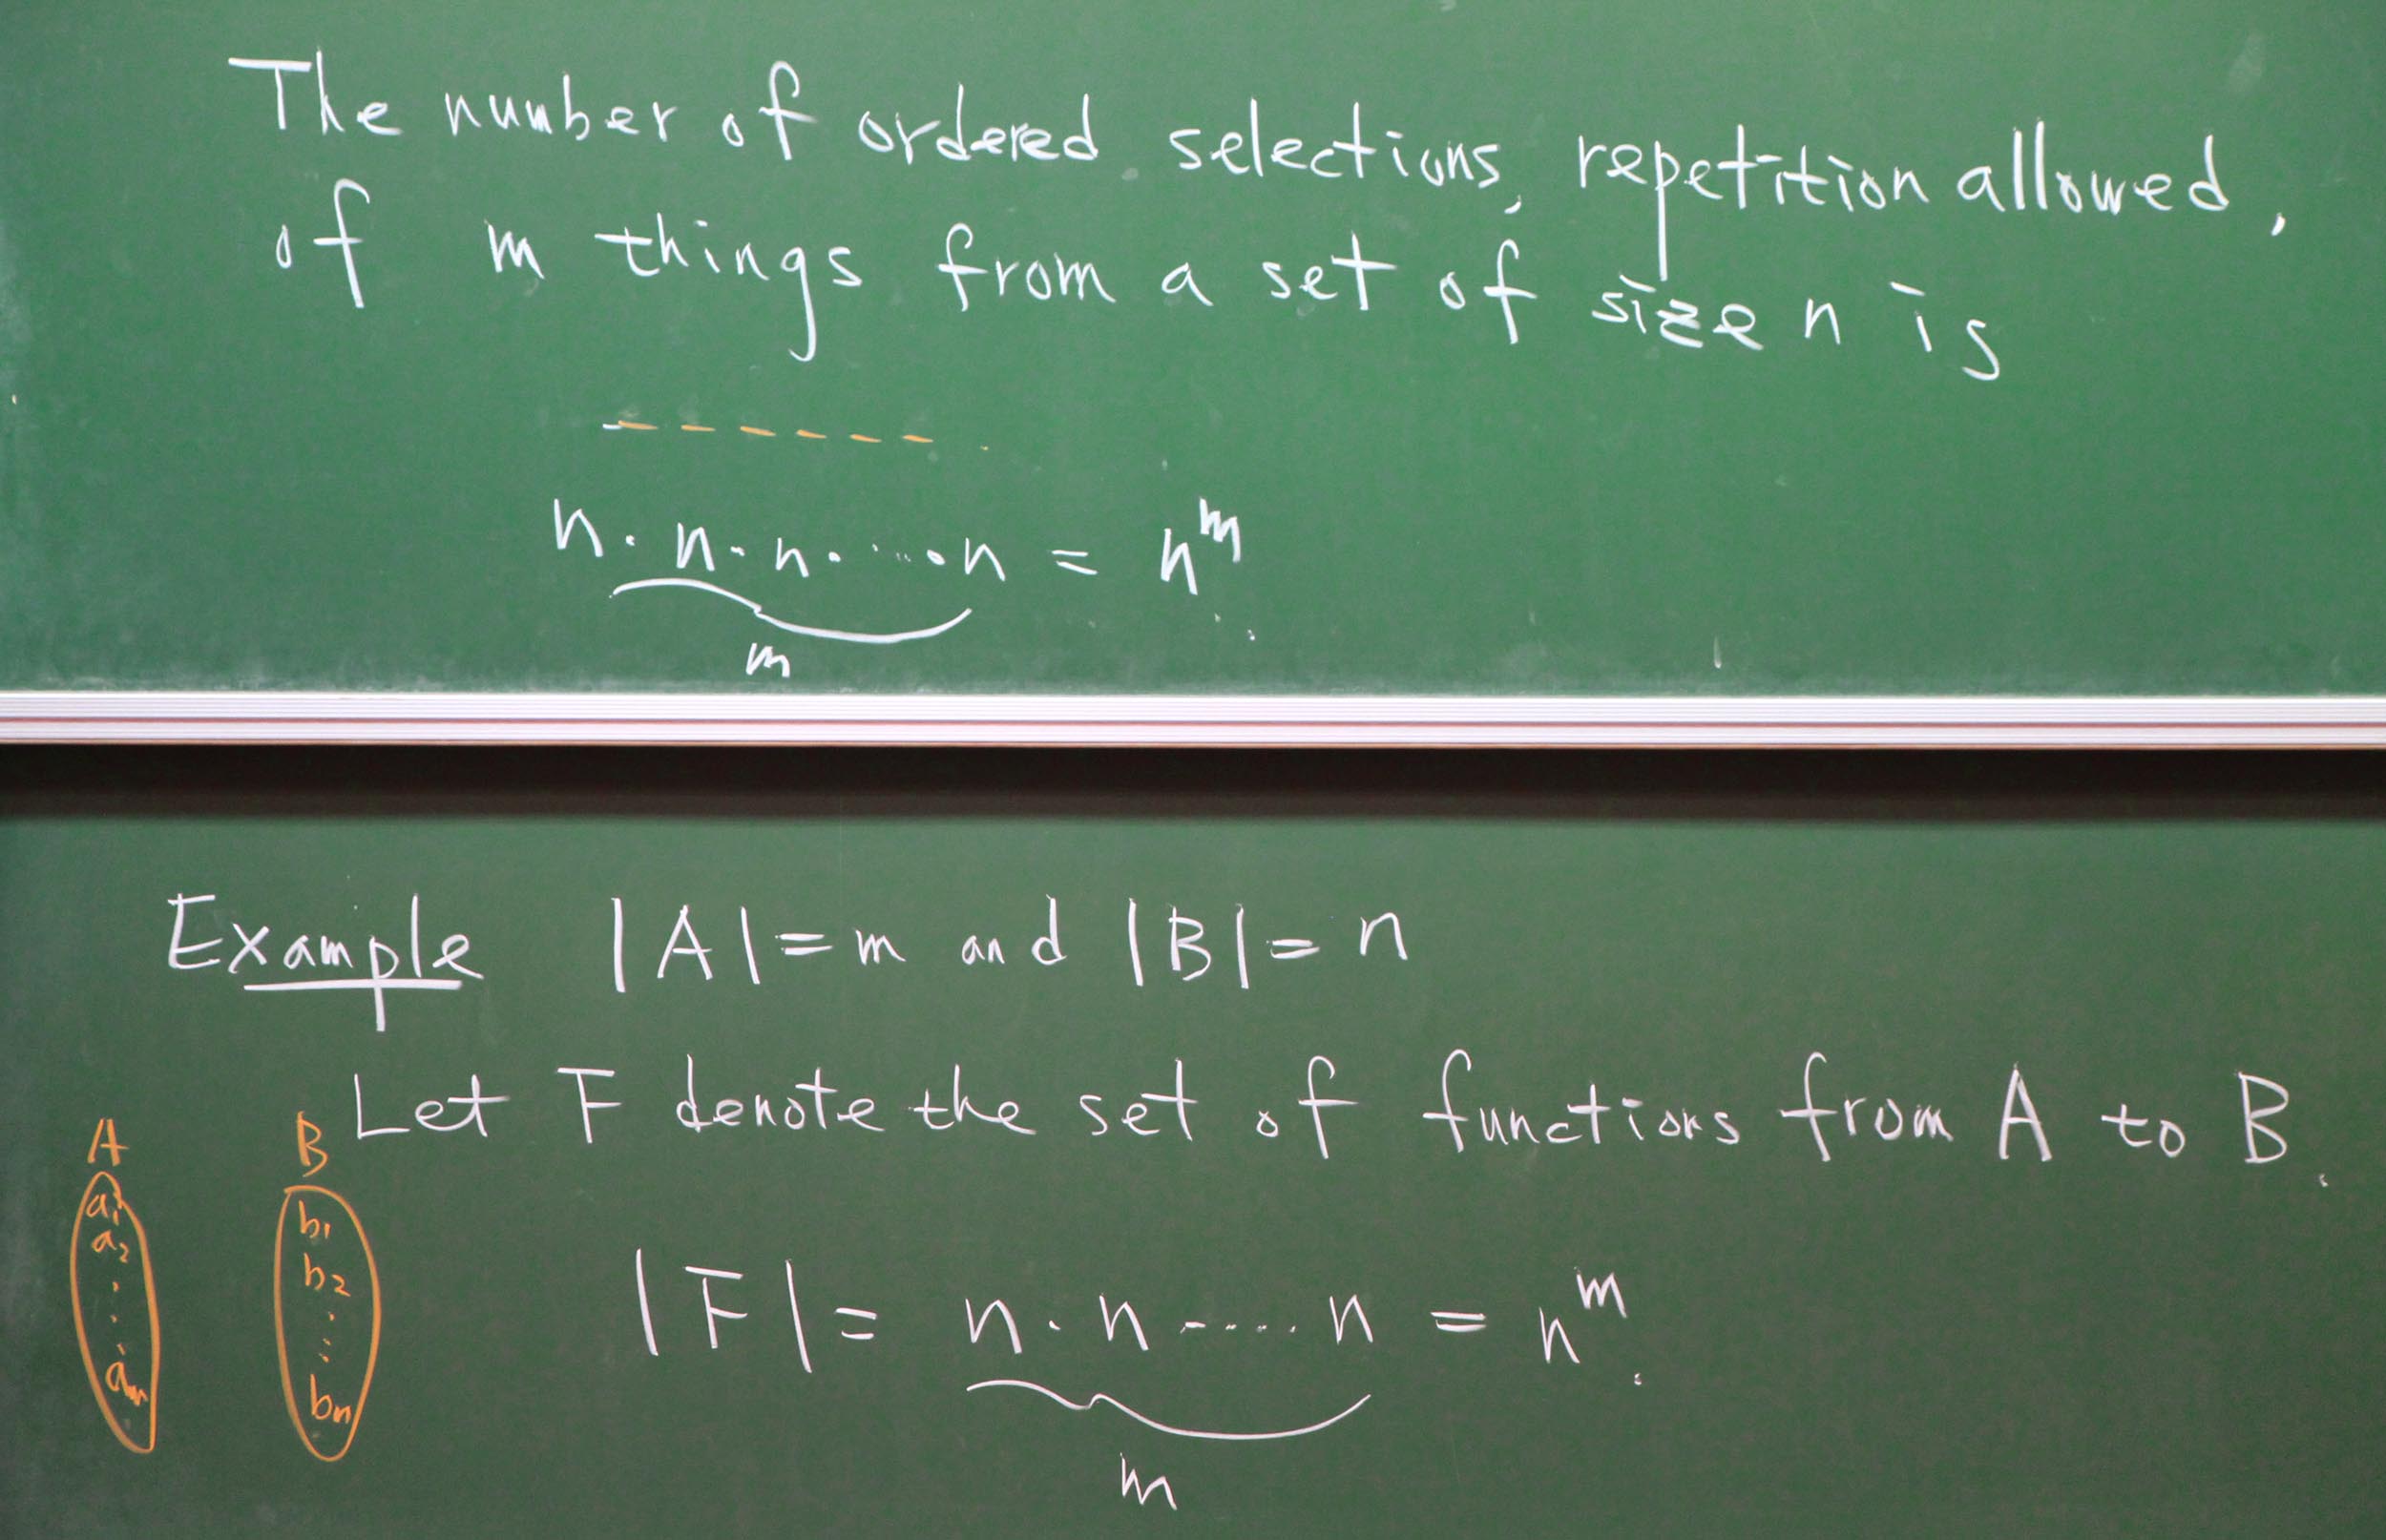 The number of ordered selections, repetition allowed,
of m things from a set of size n is
n · n · n · ···· · n = n^m.
m
Example |A| = m and |B| = n
Let F denote the set of functions from A to B.
A B
a1 b1
a2 b2
⋮ ⋮
am bn
|F| = n · n ····· n = n^m.
m